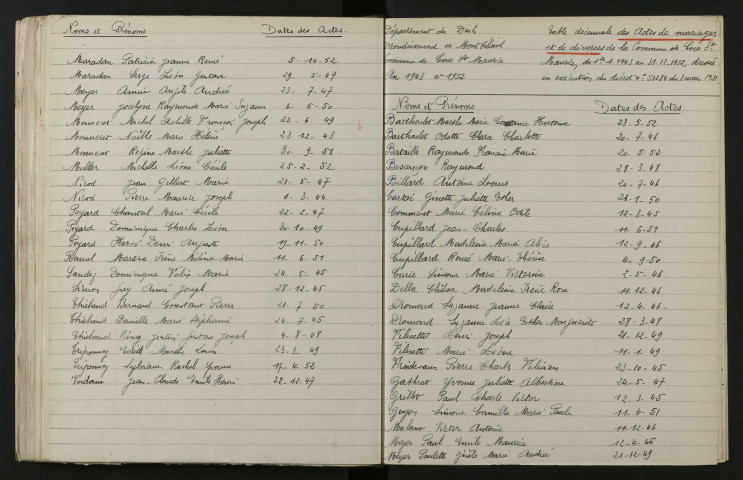 Noms et Prénoms Dates des Actes.
Maradan Patricia Jeanne Renée 5-10-52
Maradan Serge Léon Gustave 29. 5-47
Meyer Annie Angèle Andrée 23. 7-47
Meyer Jocelyne Raymonde Marie Suzanne 6-5-50
Monnerat Michel Achille François Joseph 22-6.49
Monnerat Noëlle Marie Hélène 23.12.43
Monnerat Régine Marthe Juliette 30-9.51
Muller Michelle Léone Cécile 25-2-52
Nicod Jean Gilbert Marie 21-5-47
Nicod Pierre Maurice Joseph 6.3.44
Poyard Chantal Marie Cécile 22-2.47
Poyard Dominique Charles Léon 30.10.49
Poyard Hervé Denis Auguste 19.11.50
Irène Marie 11.6 51
Sandoz Dominique Félix Marie 24.5-45
Guy Aimé Joseph 28.12.45
Thiébaud Bernard Constant Pierre 21.7.50
Thiébaud Danielle Marie Stéphanie 24.7.45
Thiébaud Rémy Justin Gustave Joseph 4-8-48
Triponney Edith Marthe 23.3.49
Triponney Sylviane Rachel Yvonne 17-4.52
Jean-Claude Emile Henri 22.12.47
Département du Doubs
Arrondissement de Montbéliard
Commune de Saint Maurice
An 1943 à 1952
Table décennale des Actes de mariages
et de divorces de la Commune de
du 1er.1.1943 au 31.12.1952, dressé
en exécution du décret n° du 3 mars 1951
Noms et Prénoms Dates des Actes
Barthoulot Marthe Marie Constance Hortense 23.5.52
Barthoulot Odette Clara Charlotte 20-7-46
Bataille Raymonde Marie 20.5.52
Besançon Raymond 27.3.48
Billard Antoine 20-7-46
Ginette Juliette 21.1.50
Comment Marie Céline Odile 12-3.45
Cupillard Jean-Charles 11.6-51
Cupillard Madeleine Maria Alice 12-9.46
Cupillard Renée Marie-Thérèse 4-9-50
Curie Simone Marie Victorine 2-5-46
Della Chiesa Madeleine Irène Rose 11.12.46
Dromard Suzanne Jeanne 12.4.46.
Dromard Suzanne Léa Esther Marguerite 28-3.48
Henri Joseph 21-12.49
Marie 11-1.49
Pierre Charles 23.10-45
Yvonne Juliette Albertine 24-5.47
Grillot Paul Charles Victor 12.3.45
Guyon Simone Camille Marie Paule 11.6-51
Victor Antoine 11-12-46
Meyer Paul Emile Maurice 12-4-46
Meyer Paulette Gisèle Marie Andrée 21-12-49